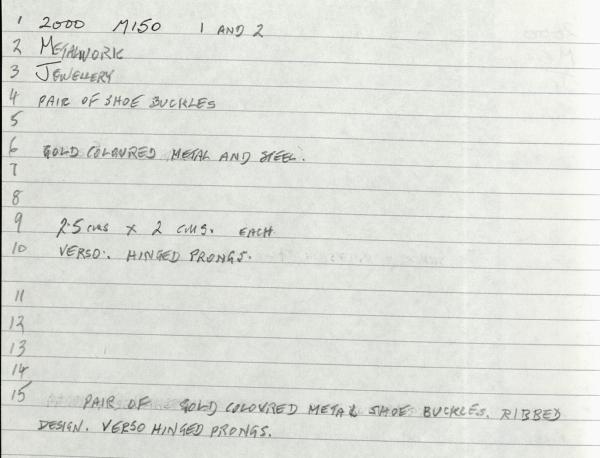 1 2000 M150 1 AND 2
2 METALWORK
3 JEWELLERY
4 PAIR OF SHOE BUCKLES
5
6 GOLD COLOURED METAL AND STEEL.
7
8
9 2.5 cms x 2 cms. EACH
10 VERSO: HINGED PRONGS.
11
12
13
14
15 PAIR OF GOLD COLOURED METAL SHOE BUCKLES. RIBBED
DESIGN. VERSO HINGED PRONGS.